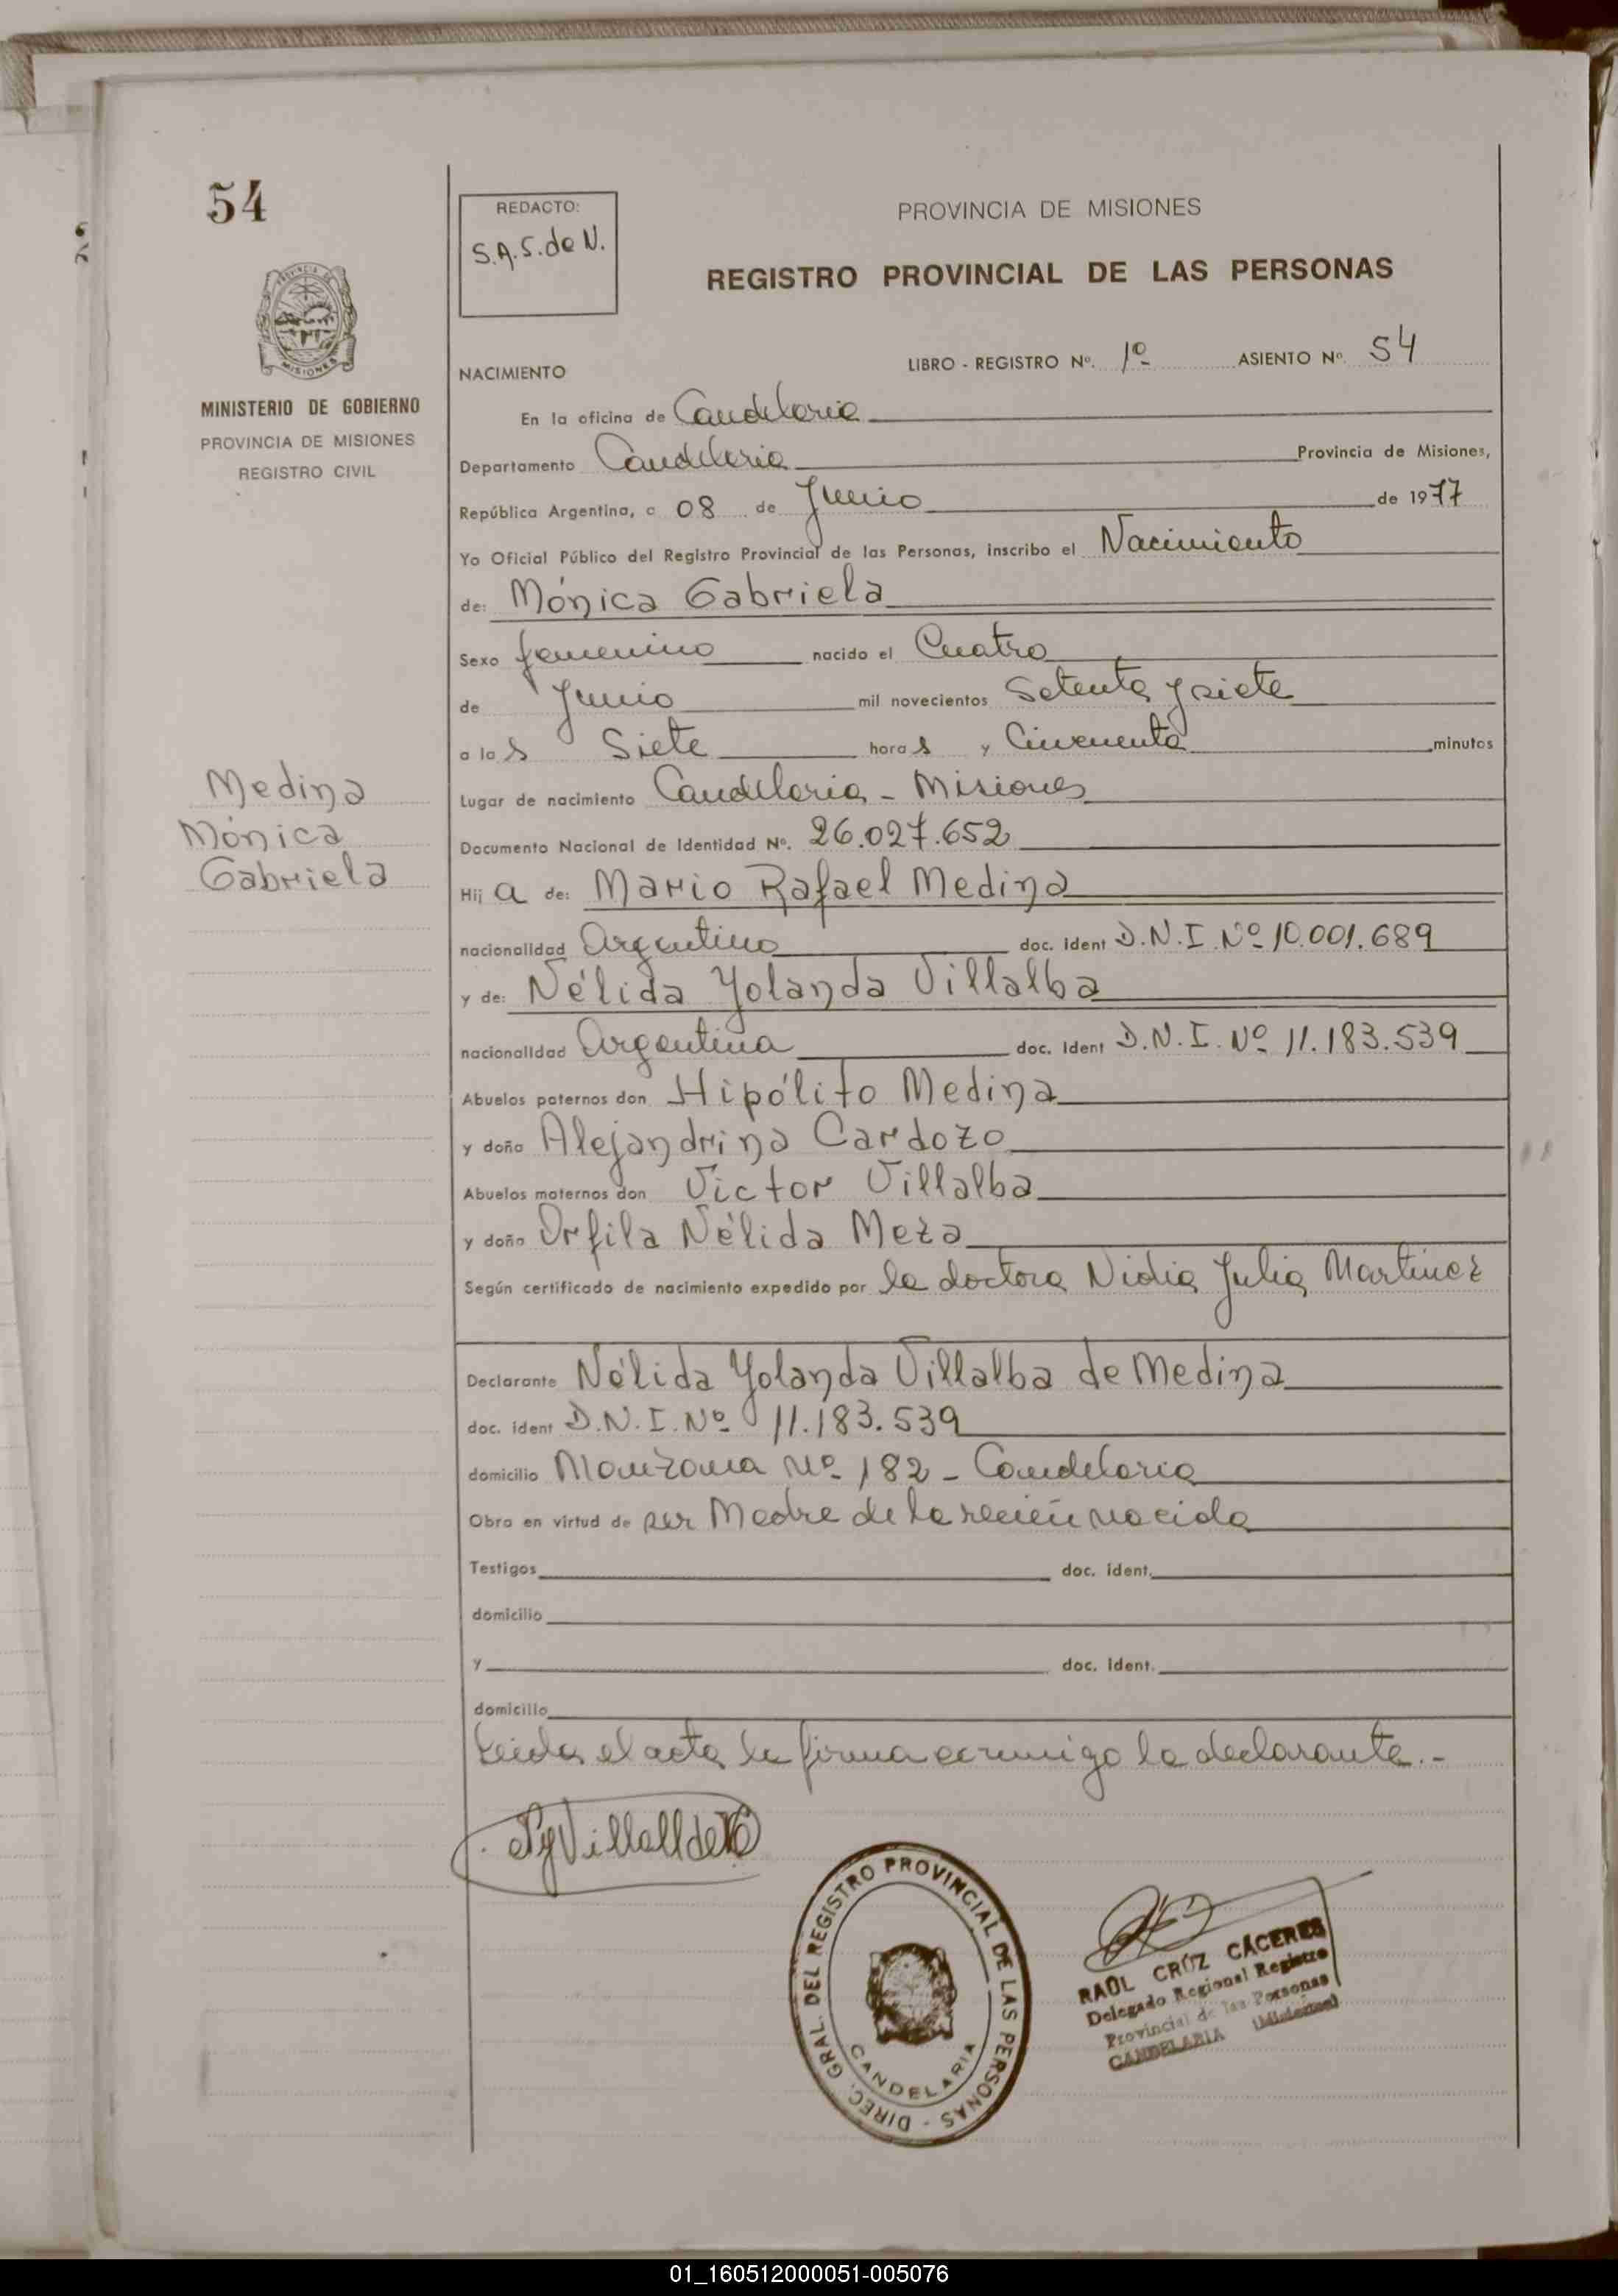 54
REDACTO:
S.A.S. de N.
PROVINCIA DE MISIONES
REGISTRO PROVINCIAL DE LAS PERSONAS
MISIONES
MINISTERIO DE GOBIERNO
PROVINCIA DE MISIONES
REGISTRO CIVIL
NACIMIENTO
LIBRO - REGISTRO Nº. 1º ASIENTO Nº. 54
En la oficina de Candelaria
Departamento Candelaria Provincia de Misiones,
República Argentina, a 08 de Junio de 1977
Yo Oficial Público del Registro Provincial de las Personas, inscribo el Nacimiento
de: Mónica Gabriela
Sexo femenino nacido el Cuatro
de Junio mil novecientos Setenta y siete
a las Siete horas y Cincuenta minutos
Medina
Mónica
Gabriela
Lugar de nacimiento Candelaria - Misiones
Documento Nacional de Identidad Nº. 26.027.652
Hija de: Mario Rafael Medina
nacionalidad Argentino doc. ident D.N.I. Nº 10.001.689
y de: Nélida Yolanda Villalba
nacionalidad Argentina doc. ident D.N.I. Nº 11.183.539
Abuelos paternos don Hipólito Medina
y doña Alejandrina Cardozo
Abuelos maternos don Victor Villalba
y doña Orfila Nélida Meza
Según certificado de nacimiento expedido por la doctora Nidia Julia Martinez
Declarante Nélida Yolanda Villalba de Medina
doc. ident D.N.I. Nº 11.183.539
domicilio Manzana Nº 182 - Candelaria
Obra en virtud de ser Madre de la recién nacida
Testigos doc. ident.
domicilio
y doc. ident.
domicilio
Leida el acta la firma conmigo la declarante.-
DIREC. GRAL. DEL REGISTRO PROVINCIAL DE LAS PERSONAS -
CANDELARIA
RAÚL CRÚZ CÁCERES
Delegado Regional Registro
Provincial de las Personas
CANDELARIA (Misiones)
01_160512000051-005076